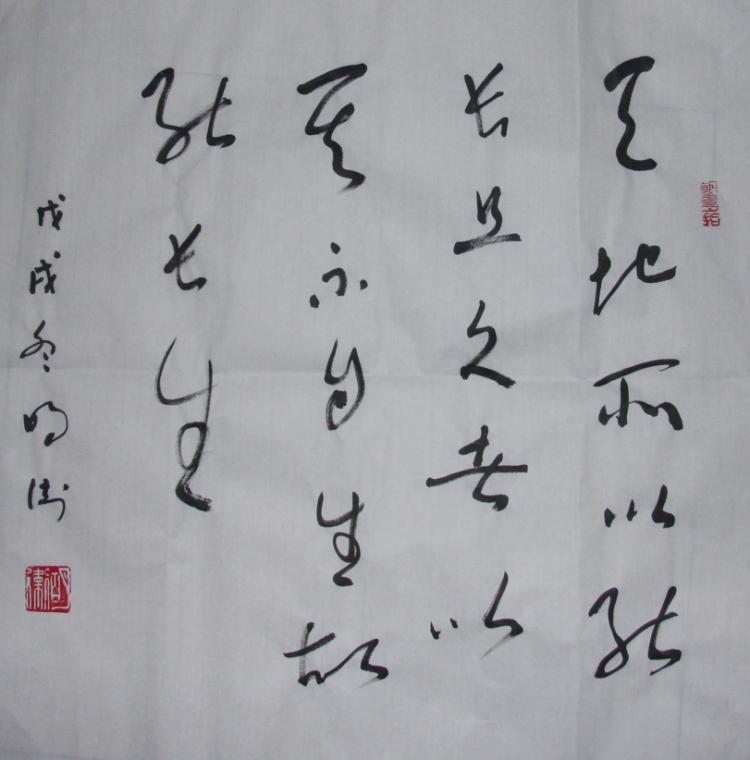 天地所以能
长且久者以
其不自生故
能长生
戊戌冬明卫